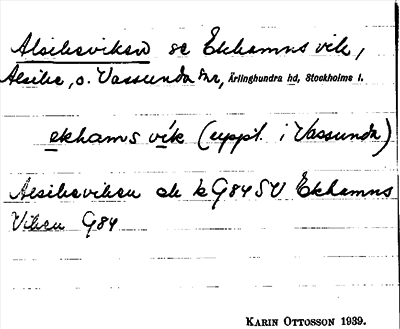 Alsikeviken se Ekhamns vik,
Alsike, o. Vassunda snr, Ärlinghundra hd, Stockholms l.
ekhams vik (uppt. i Vassunda)
Alsikeviken ek k G84 SV Ekhamns
Viken G84
KARIN OTTOSSON 1939.